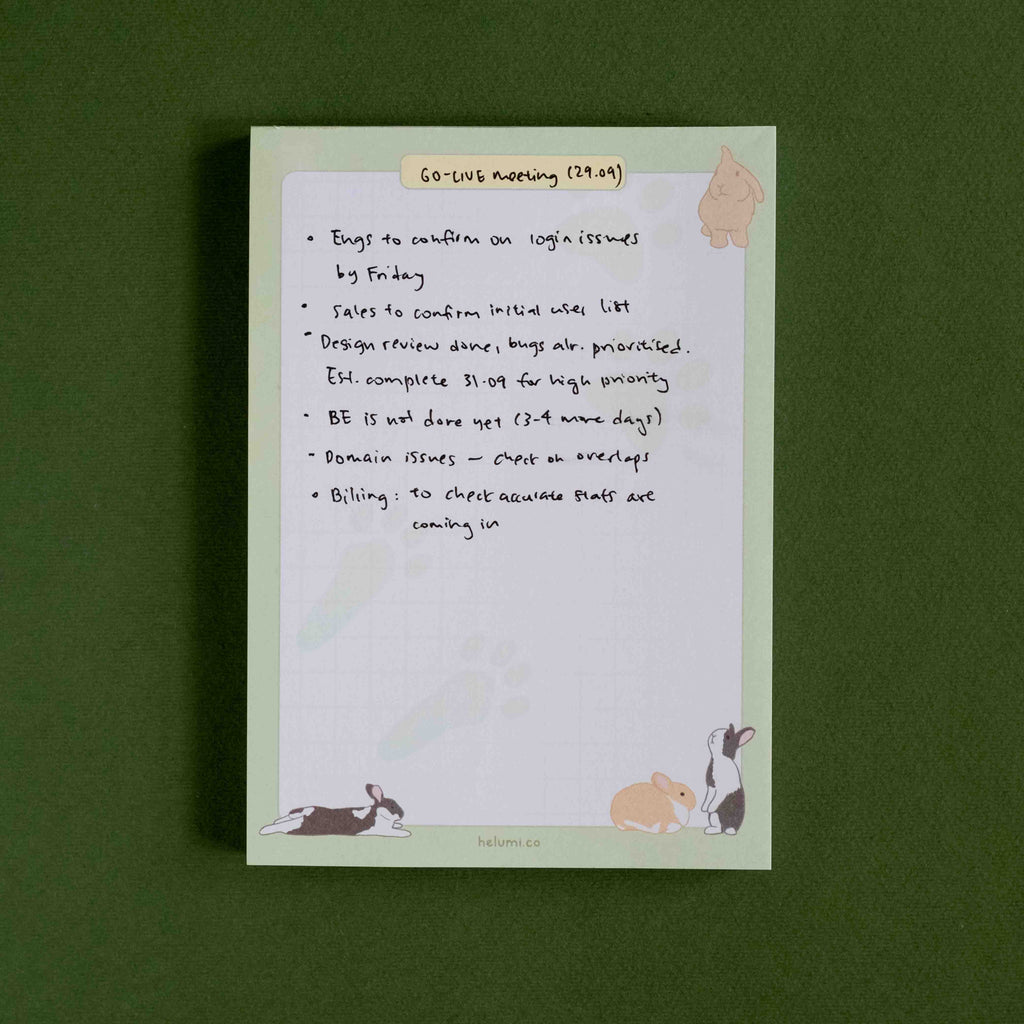 GO-LIVE meeting (29.09)
• Engs to confirm on login issues
by Friday
• Sales to confirm initial user list
- Design review done, bugs alr. prioritised.
Est. complete 31.09 for high priority
- BE is not done yet (3-4 more days)
- Domain issues – check on overlaps
• Billing: to check accurate stats are
coming in
helumi.co